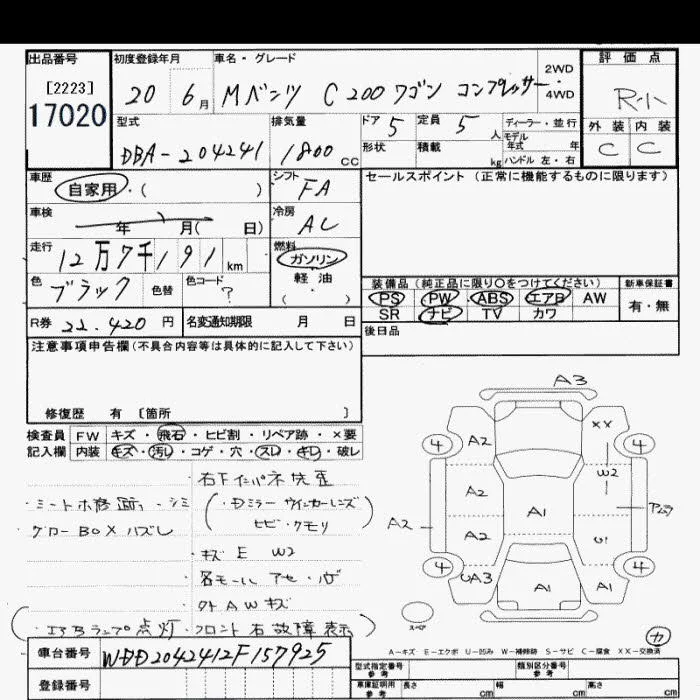 出品番号 初度登録年月 車名・グレード 2WD・4WD 評価点
[2223]
17020
20 6月 Mベンツ C200ワゴン コンプレッサー R-ハ
型式 排気量 ドア 5 定員 5人 ディーラー・並行 外装 内装
DBA-204241 1800cc 形状 積載 kg モデル年式 年 ハンドル 左・右 C C
車歴 自家用・( ) シフト FA セールスポイント(正常に機能するものに限ります)
車検 年 月( 日) 冷房 AC
走行 12万7千191km 燃料 ガソリン 軽油 ( )
色 ブラック 色替 色コード ? 装備品(純正品に限り○をつけてください) 新車保証書
PS PW ABS エアB AW 有・無
SR ナビ TV カワ
R券 22.420円 名変通知期限 月 日 後日品
注意事項申告欄(不具合内容等は具体的に記入して下さい)
修復歴 有 [箇所 ]
検査員 FW キズ・飛石・ヒビ割・リペア跡・×要
記入欄 内装 キズ・汚レ・コゲ・穴・スレ・キレ・破レ
右下インパネ
・シミ
グローBOXハズレ
・Dミラーウインカーレンズ
ヒビ・クモリ
・キズ E W2
・各モール アセ・ハゲ
・外AWキズ
(・エアBランプ点灯・フロント右故障表示)
A3
A2 XX
4 4
A2 W2
A2 A2 A1 U1
4 4
UA3 A1 A1
スペア
カ
A-キズ E-エクボ U-凹み W-補修跡 S-サビ C-腐食 XX-交換済
車台番号 WDD2042412F157925
型式指定番号 参考 類別区分番号 参考
登録番号 車庫証明用 参考 長さ cm 幅 cm 高さ cm